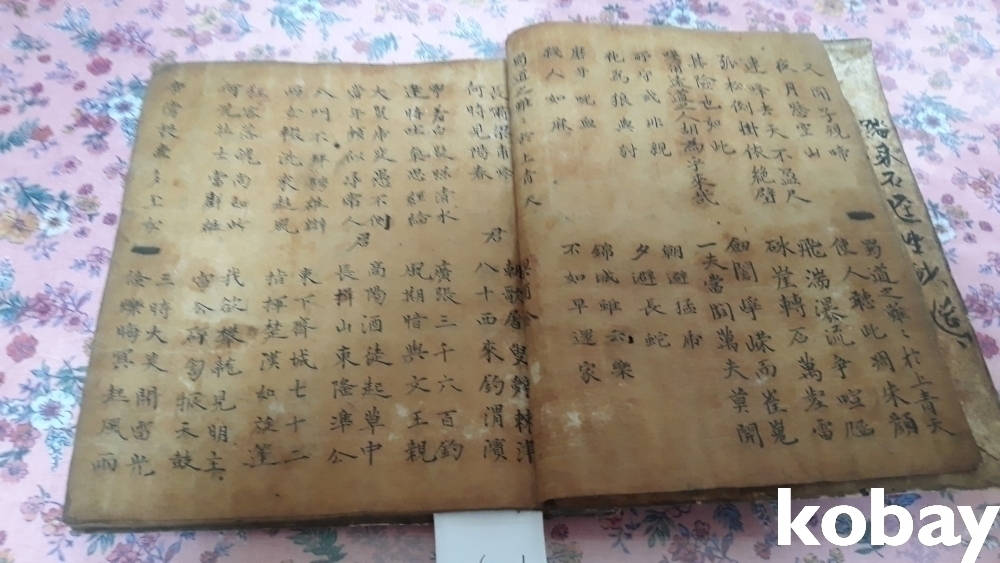 又聞子規啼
夜月愁空山
蜀道之難々於上青天
使人聽此凋朱顔
連峰去天不盈尺
飛湍瀑流爭喧豗
孤松倒掛依絶壁
砯崖轉石萬壑雷
其險也如此
遠道之人胡爲乎來哉
劍閣崢嶸而崔嵬
一夫當關萬夫莫開
所守或非親
化爲狼與豺
朝避猛虎
夕避長蛇
磨牙吮血
殺人如麻
錦城雖云樂
不如早還家
蜀道之難々於上青天
長嘯梁甫吟
何時見陽春
君
朝歌屠叟辭棘津
八十西來釣渭濱
寧羞白髮照清水
逢時吐氣思經綸
廣張三千六百釣
風期暗與文王親
大賢虎變愚不測
當年頗似尋常人
君
高陽酒徒起草中
長揖山東隆準公
入門不拜騁雄辯
兩女輟洗來趨風
東下齊城七十二
指揮楚漢如旋蓬
狂客落魄尚如此
何況壯士當群雄
我欲攀龍見明主
雷公砰訇振天鼓
帝旁投壺多玉女
三時大笑開電光
倏爍晦冥起風雨
kobay